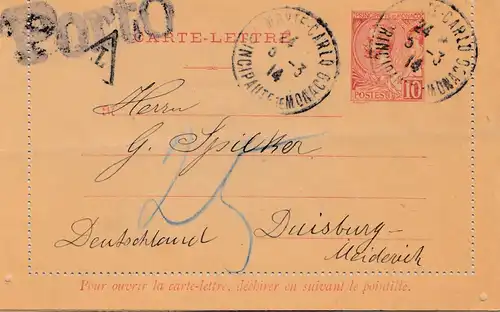 Porto
T
CARTE-LETTRE
MONTE-CARLO
PRINCIPAUTÉ DE MONACO
14
MONTE-CARLO
14
POSTES 10
Herrn
G. Spilker
25
Duisburg-
Deutschland Meiderich
Pour ouvrir la carte-lettre, déchirer en suivant le pointillé.